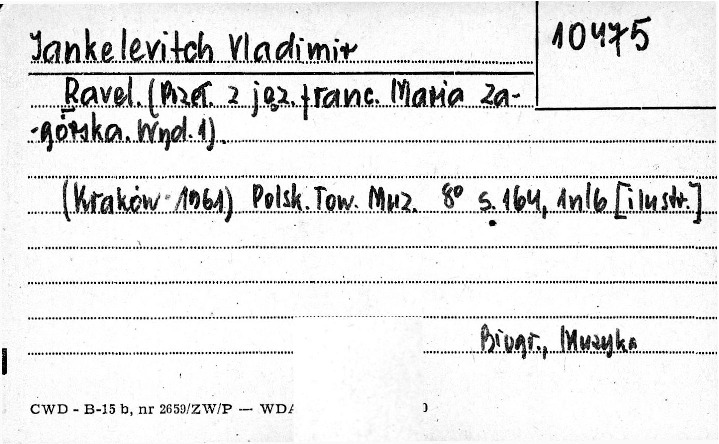 Jankelevitch Vladimir
10475
Ravel. (Przeł. z jęz. franc. Maria Za-
-górska. Wyd. 1).
(Kraków 1961) Polsk. Tow. Muz. 8° s. 164, 1nlb [ilustr.]
Biogr., Muzyka
CWD - B-15 b, nr 2659/ZW/P — WDA